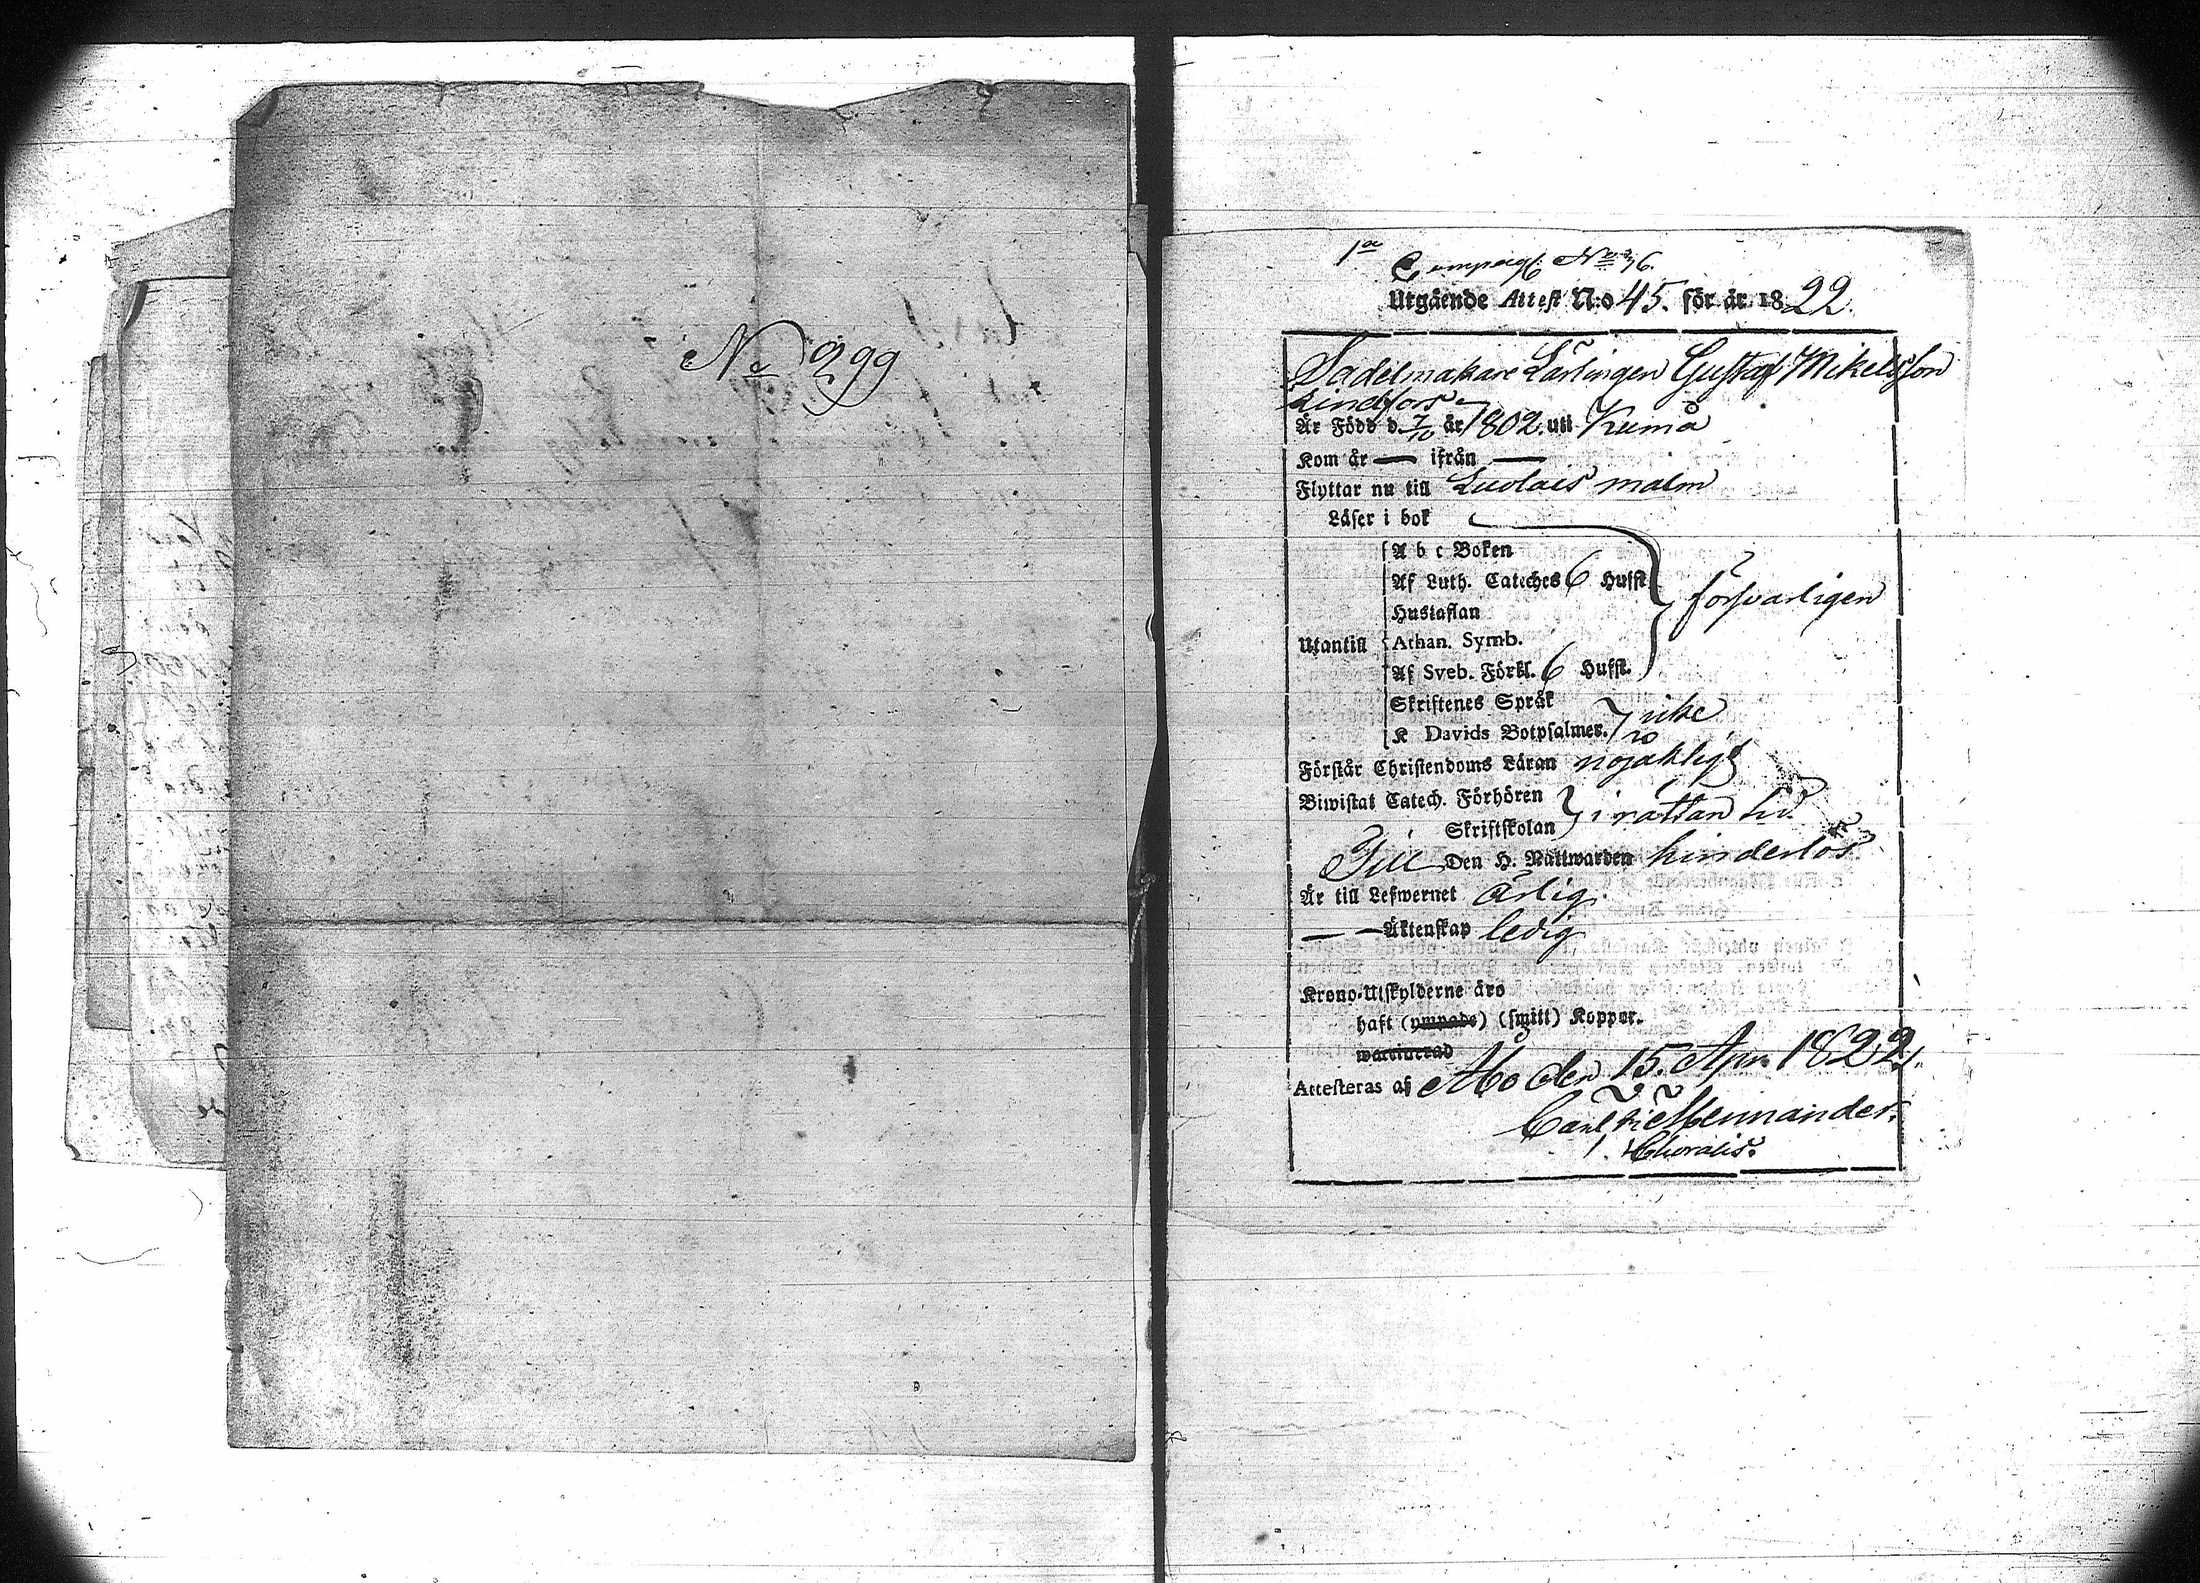 No 299
1a Compagt: No 76.
Utgående Attest N:o 45. för år 1822.
Sadelmakare Lärlingen Gustaf Mikelsson
Lindfors
Är Född d. 7/10 år 1802. uti Kumå
Kom år — ifrån —
Flyttar nu till malm
Läser i bok
A b c Boken
Af Luth. Cateches 6 Hufst
försvarligen
Hustaflan
Utantill Athan. Symb.
Af Sveb. Förkl. 6 Hufst.
Skriftenes Språk
K Davids Botpsalmer. icke
Förstår Christendoms Läran nöjaktligt
Biwistat Catech. Förhören
i rättan tid
Skriftskolan
Till Den H. Nattwarden hinderlös
Är till Lefwernet ärlig
— — Äktenskap ledig
Krono-Utskylderne äro
haft (ympade) (smitt) Koppor.
waccinerad
Attesteras af Åbo den 15. Apr. 1822.
Carl Mennander.